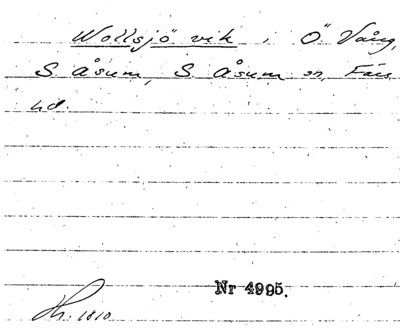 Wollsjö vik, Ö Vång,
S Åsum, S Åsum sn, Färs
hd.
Nr 4995.
1810